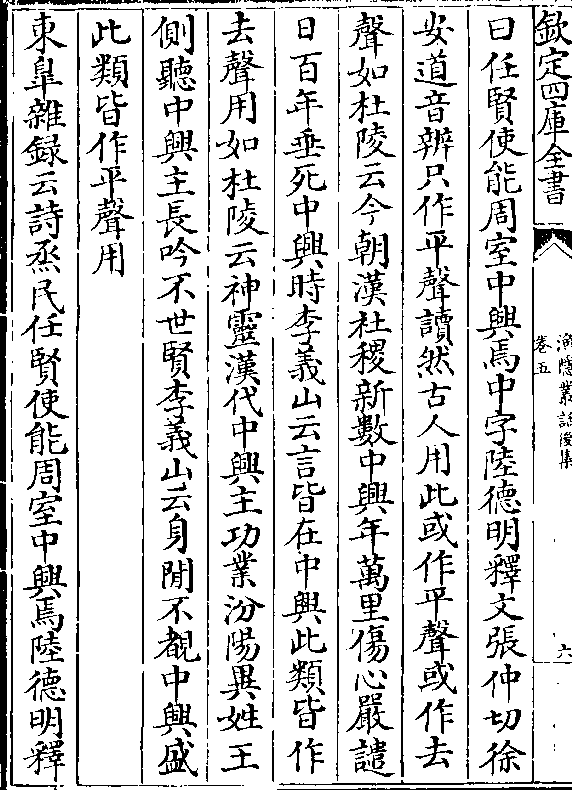 欽定四庫全書
漁隱叢話後集
卷五
六
曰任賢使能周室中興焉中字陸德明釋文張仲切徐
安道音辨只作平聲讀然古人用此或作平聲或作去
聲如杜陵云今朝漢社稷新數中興年萬里傷心嚴譴
日百年垂死中興時李義山云言皆在中興此類皆作
去聲用如杜陵云神靈漢代中興主功業汾陽異姓王
側聽中興主長吟不世賢李義山云身閒不覩中興盛
此類皆作平聲用
東臯雜録云詩烝民任賢使能周室中興焉陸德明釋